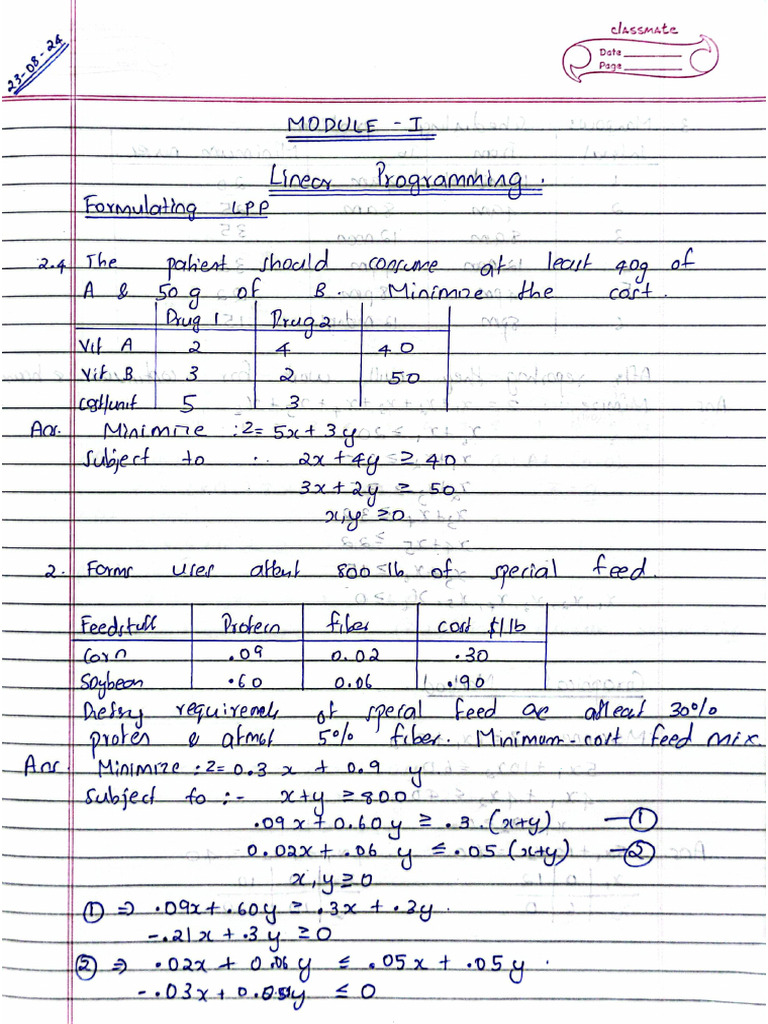 classmate
Date
Page
23-08-24
MODULE - I
Linear Programming.
Formulating LPP
2.4 The patient should consume at least 40g of
A & 50 g of B. Minimize the cost.
Drug 1 Drug 2
Vit A 2 4 40
Vit B 3 2 50
cost/unit 5 3
Ans. Minimize : z = 5x + 3y
Subject to 2x + 4y ≥ 40
3x + 2y ≥ 50
x,y ≥ 0
2. Forms uses atbut 800 lb of special feed.
Feedstuff Protein fiber cost $/lb
Corn .09 0.02 .30
Soybean .60 0.06 .90
requirements of special feed are atleast 30%
protein & atmost 5% fiber. Minimum-cost feed mix.
Ans. Minimize : z = 0.3 x + 0.9 y
Subject to :- x+y ≥ 800
.09x + 0.60y ≥ .3 (x+y) — ①
0.02x + .06 y ≤ .05 (x+y) — ②
x, y ≥ 0
① ⇒ .09x + .60y ≥ .3x + .3y.
-.21x + .3 y ≥ 0
② ⇒ .02x + 0.06 y ≤ .05x + .05 y.
-.03x + y ≤ 0